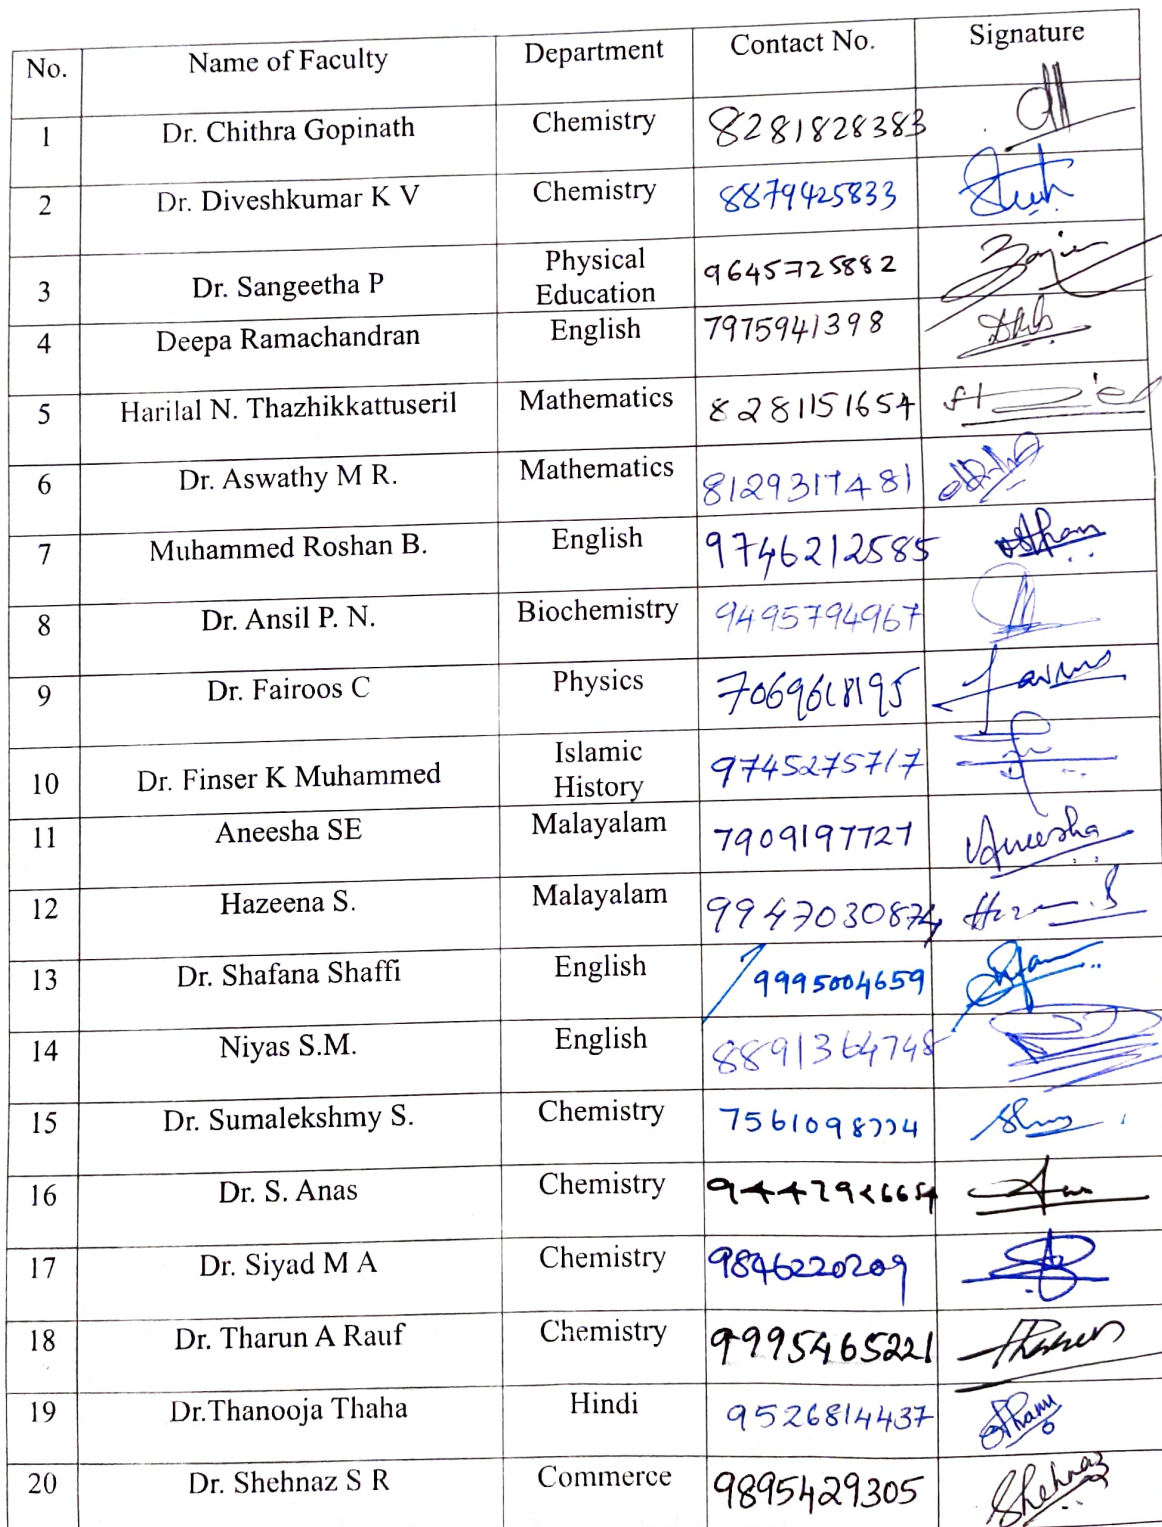 No. Name of Faculty Department Contact No. Signature
1 Dr. Chithra Gopinath Chemistry 8281828383
2 Dr. Diveshkumar K V Chemistry 8879425833
3 Dr. Sangeetha P Physical Education 9645725882
4 Deepa Ramachandran English 7975941398
5 Harilal N. Thazhikkattuseril Mathematics 8281151654
6 Dr. Aswathy M R. Mathematics 8129317481
7 Muhammed Roshan B. English 9746212585
8 Dr. Ansil P. N. Biochemistry 9495794967
9 Dr. Fairoos C Physics 7069618195
10 Dr. Finser K Muhammed Islamic History 9745275717
11 Aneesha SE Malayalam 7909197727 Aneesha
12 Hazeena S. Malayalam 9947030874
13 Dr. Shafana Shaffi English 9995004659
14 Niyas S.M. English 8891364748
15 Dr. Sumalekshmy S. Chemistry
16 Dr. S. Anas Chemistry
17 Dr. Siyad M A Chemistry 9846220209
18 Dr. Tharun A Rauf Chemistry 9995465221
19 Dr.Thanooja Thaha Hindi 9526814437
20 Dr. Shehnaz S R Commerce 9895429305 Shehnaz